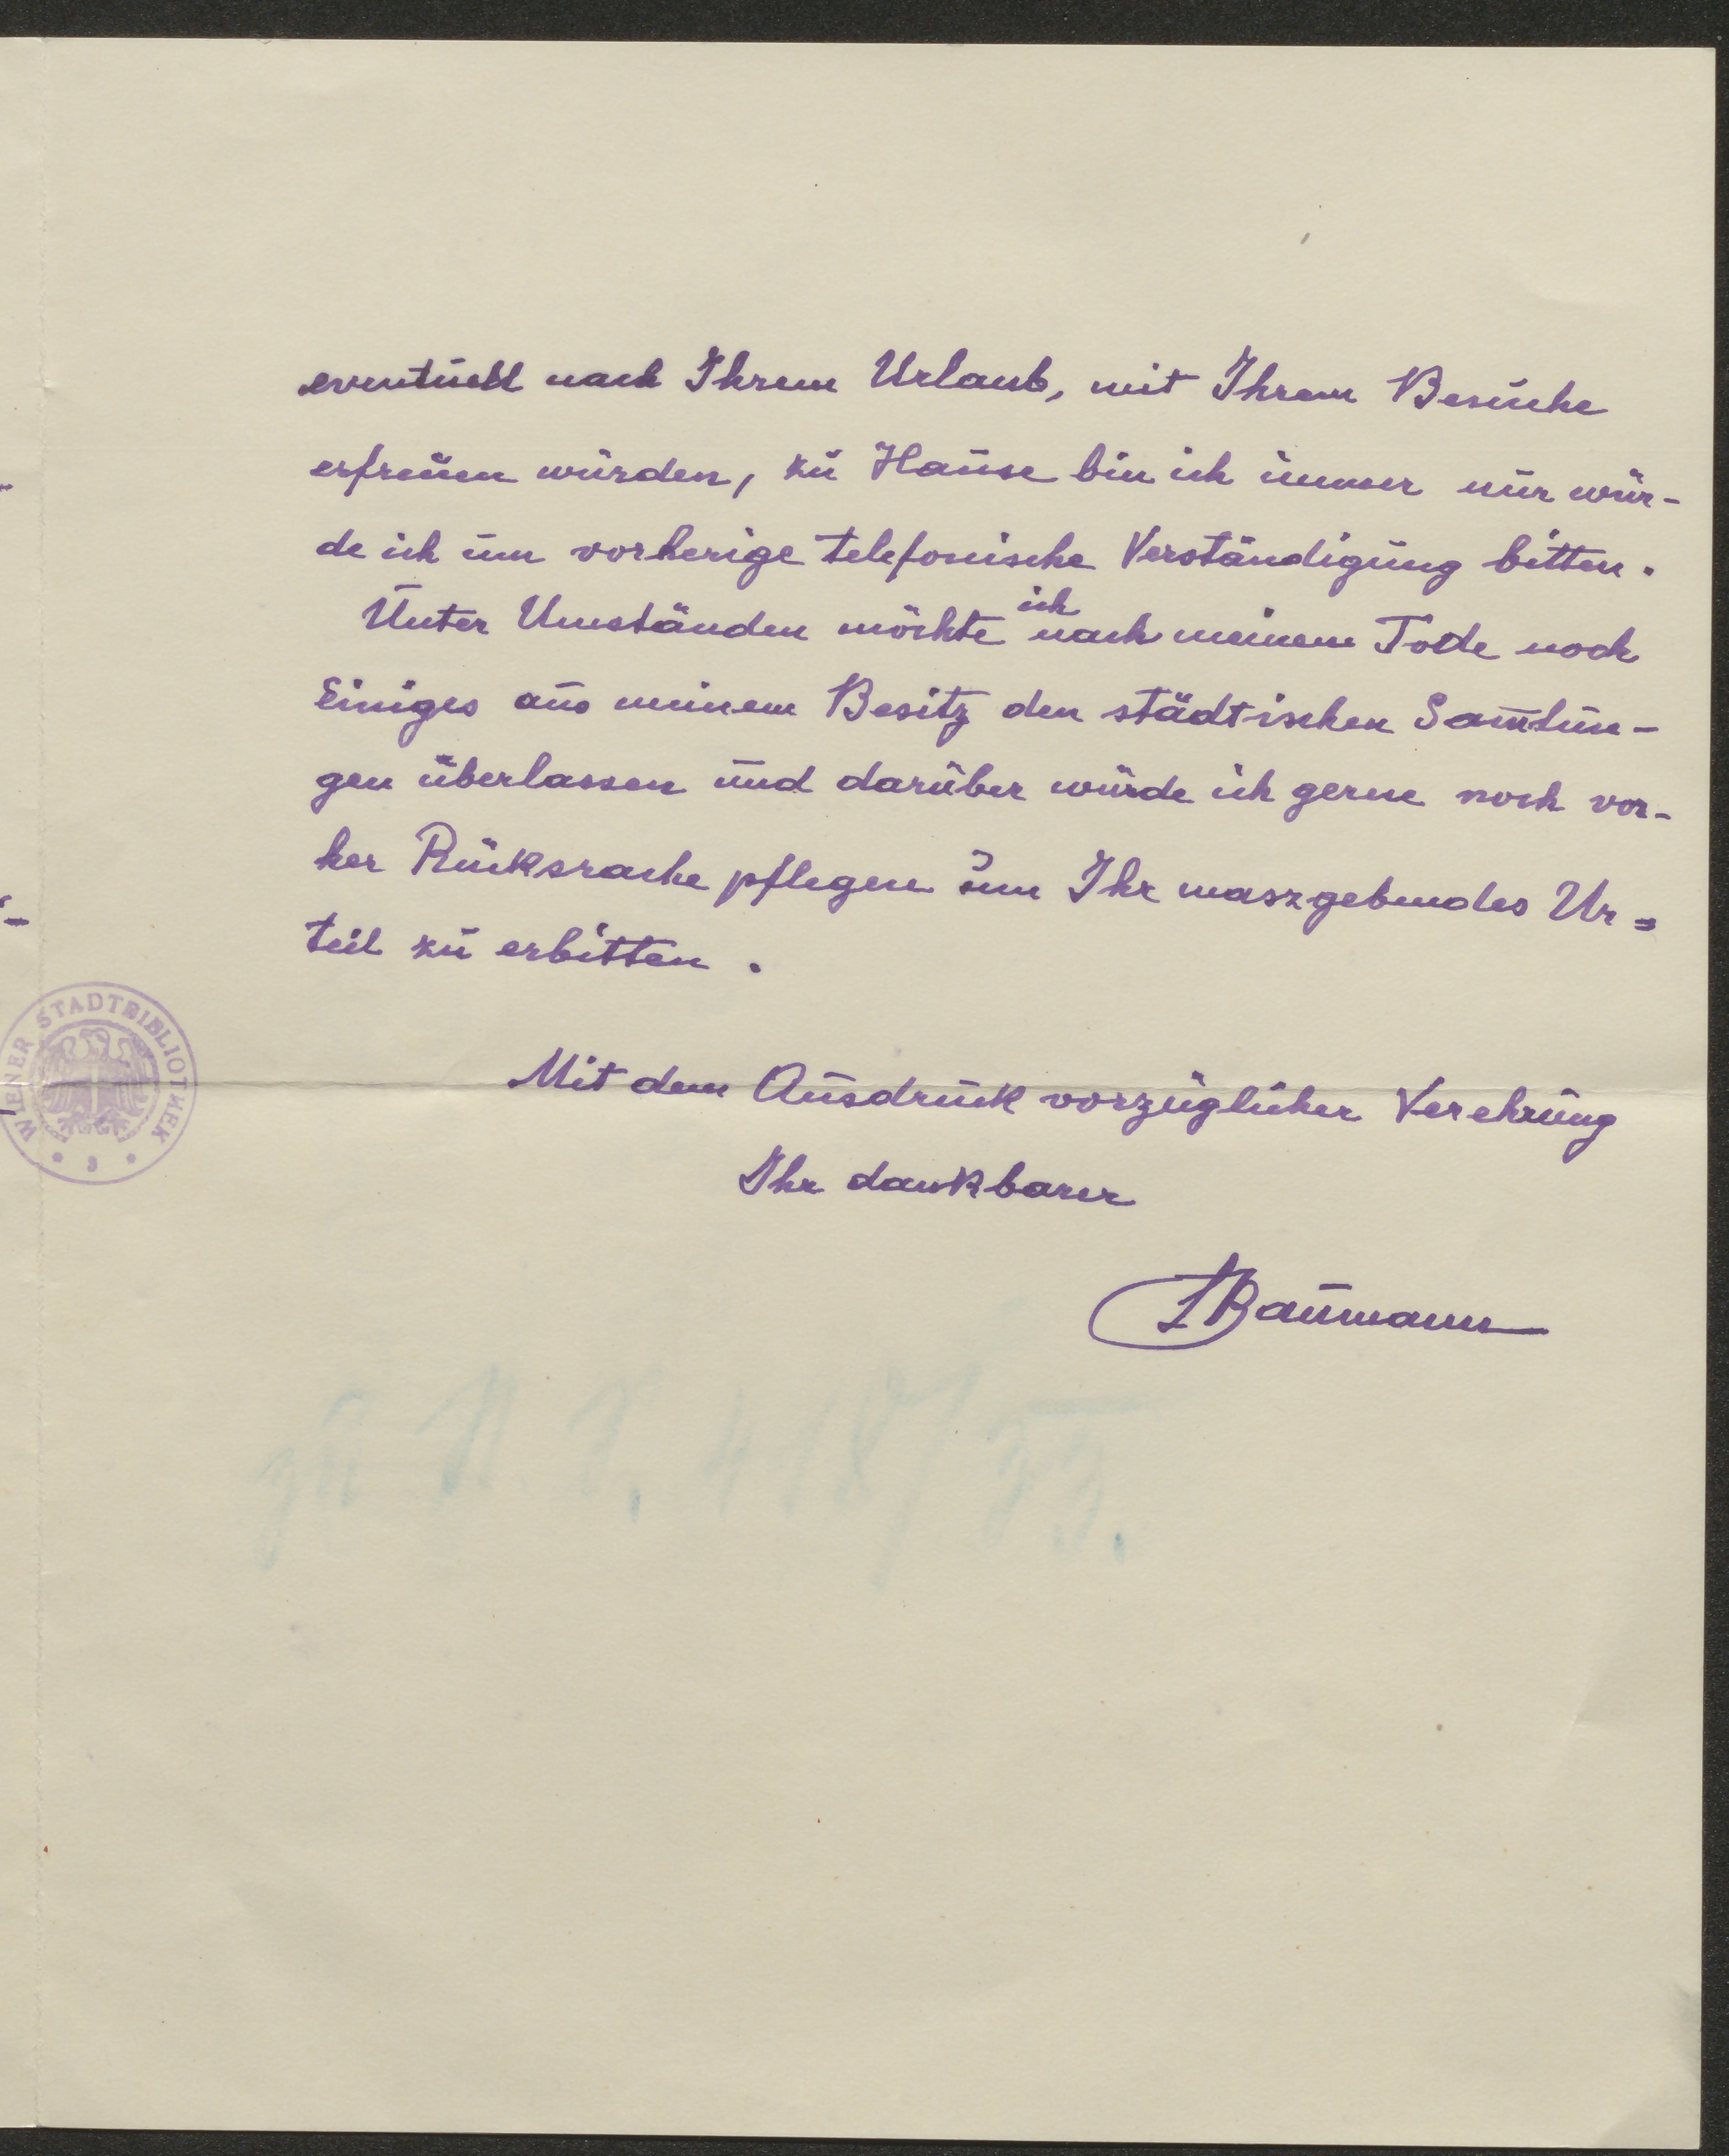 eventuell nach Ihrem Urlaub, mit Ihrem Besuche
erfreuen würden, zu Hause bin ich immer nur wür-
de ich um vorherige telefonische Verständigung bitten.
ich
Unter Umständen möchte nach meinem Tode noch
Einiges aus meinem Besitz den städtischen Sam̄lun-
gen überlassen und darüber würde ich gerne noch vor-
her Rücksrache pflegen um Ihr maszgebendes Ur=
teil zu erbitten.
WIENER STADTBIBLIOTHEK
Mit dem Ausdruck vorzüglicher Verehrung
Ihr dankbarer
LBaumann
418/